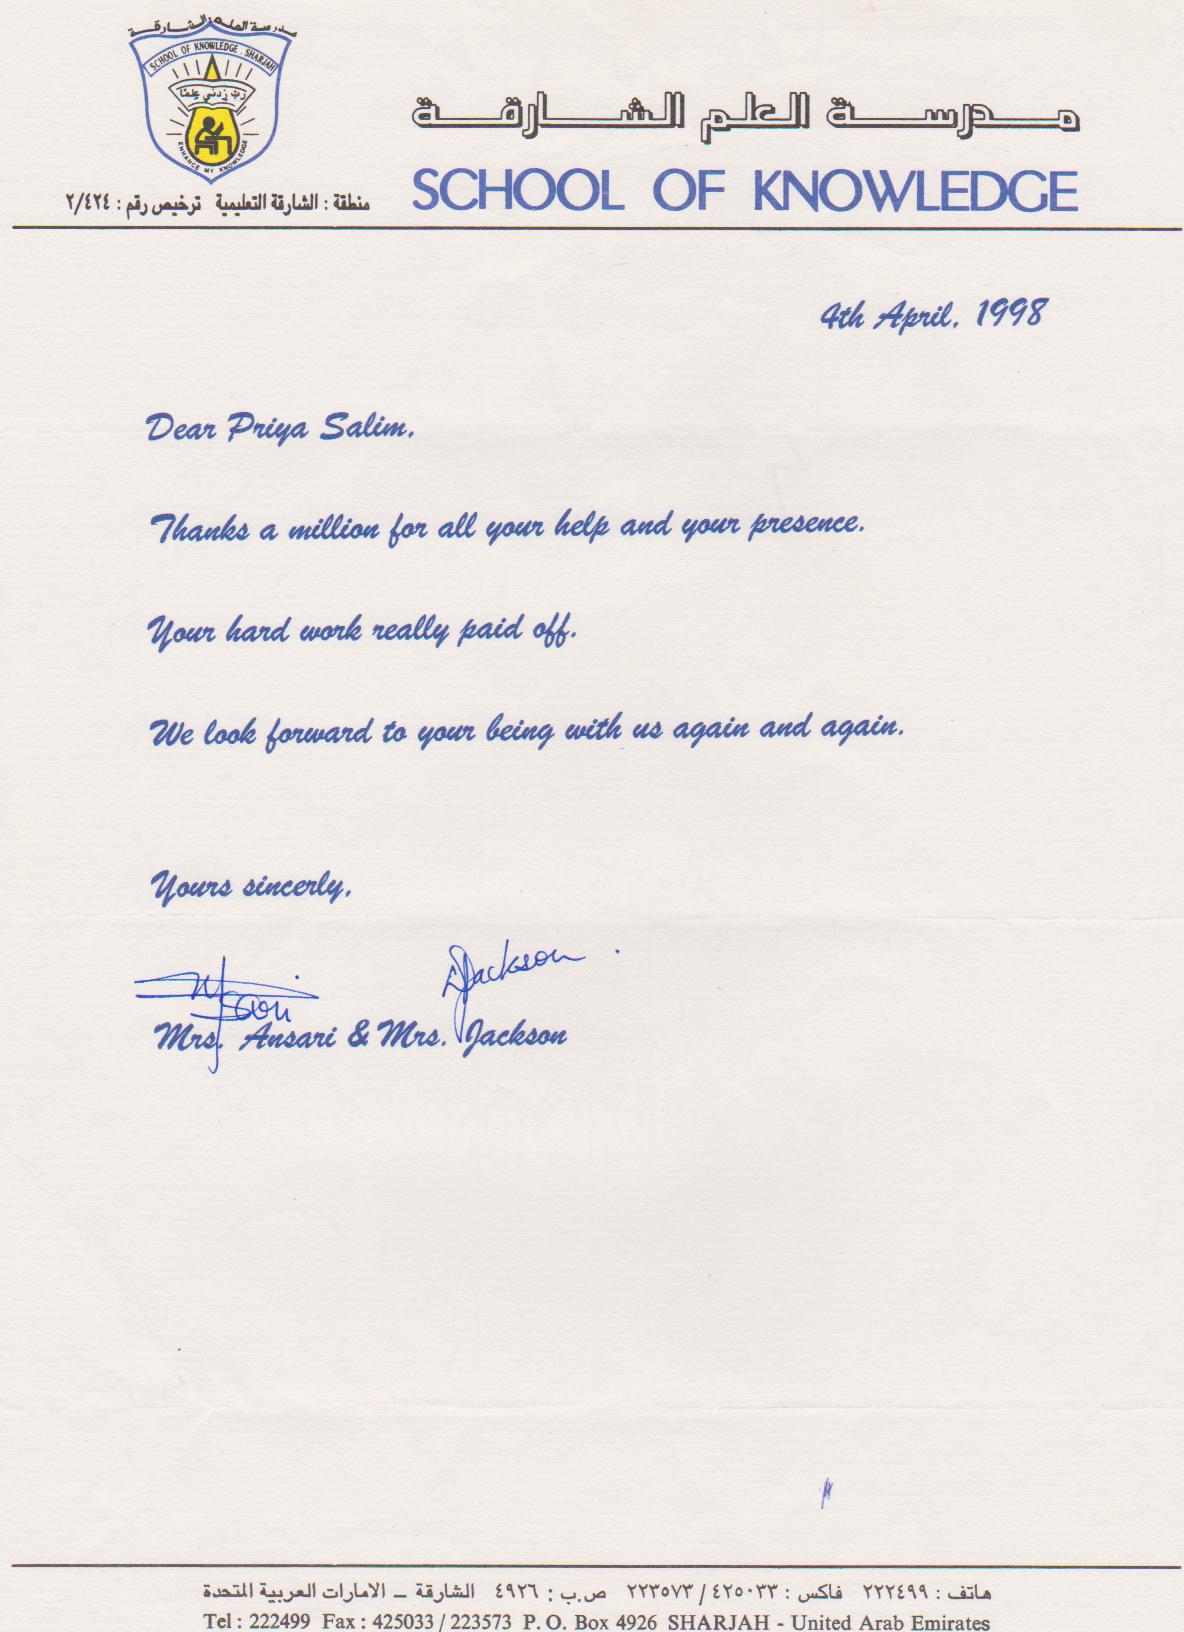 مدرسة العلم الشارقة
SCHOOL OF KNOWLEDGE . SHARJAH
رب زدني علما
ENHANCE MY KNOWLEDGE
منطقة : الشارقة التعليمية ترخيص رقم : ٢/٤٢٤
مدرسة العلم الشارقة
SCHOOL OF KNOWLEDGE
4th April, 1998
Dear Priya Salim,
Thanks a million for all your help and your presence.
Your hard work really paid off.
We look forward to your being with us again and again.
Yours sincerly,
Jackson
Mrs. Ansari & Mrs. Jackson
هاتف : ٢٢٢٤٩٩ فاكس : ٤٢٥٠٣٣ / ٢٢٣٥٧٣ ص.ب : ٤٩٢٦ الشارقة – الامارات العربية المتحدة
Tel : 222499 Fax : 425033 / 223573 P. O. Box 4926 SHARJAH - United Arab Emirates